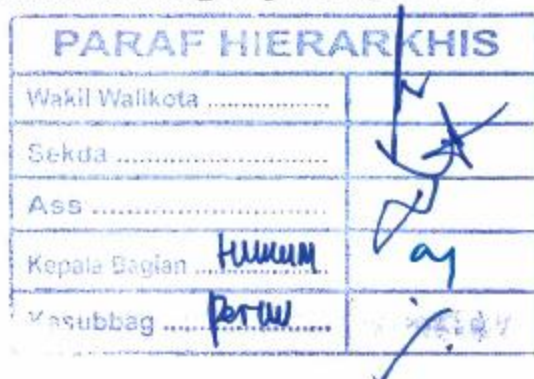 PARAF HIERARKHIS
Wakil Walikota ................
Sekda ............................
Ass ..............................
Kepala Bagian ... Hukum
Kasubbag ...